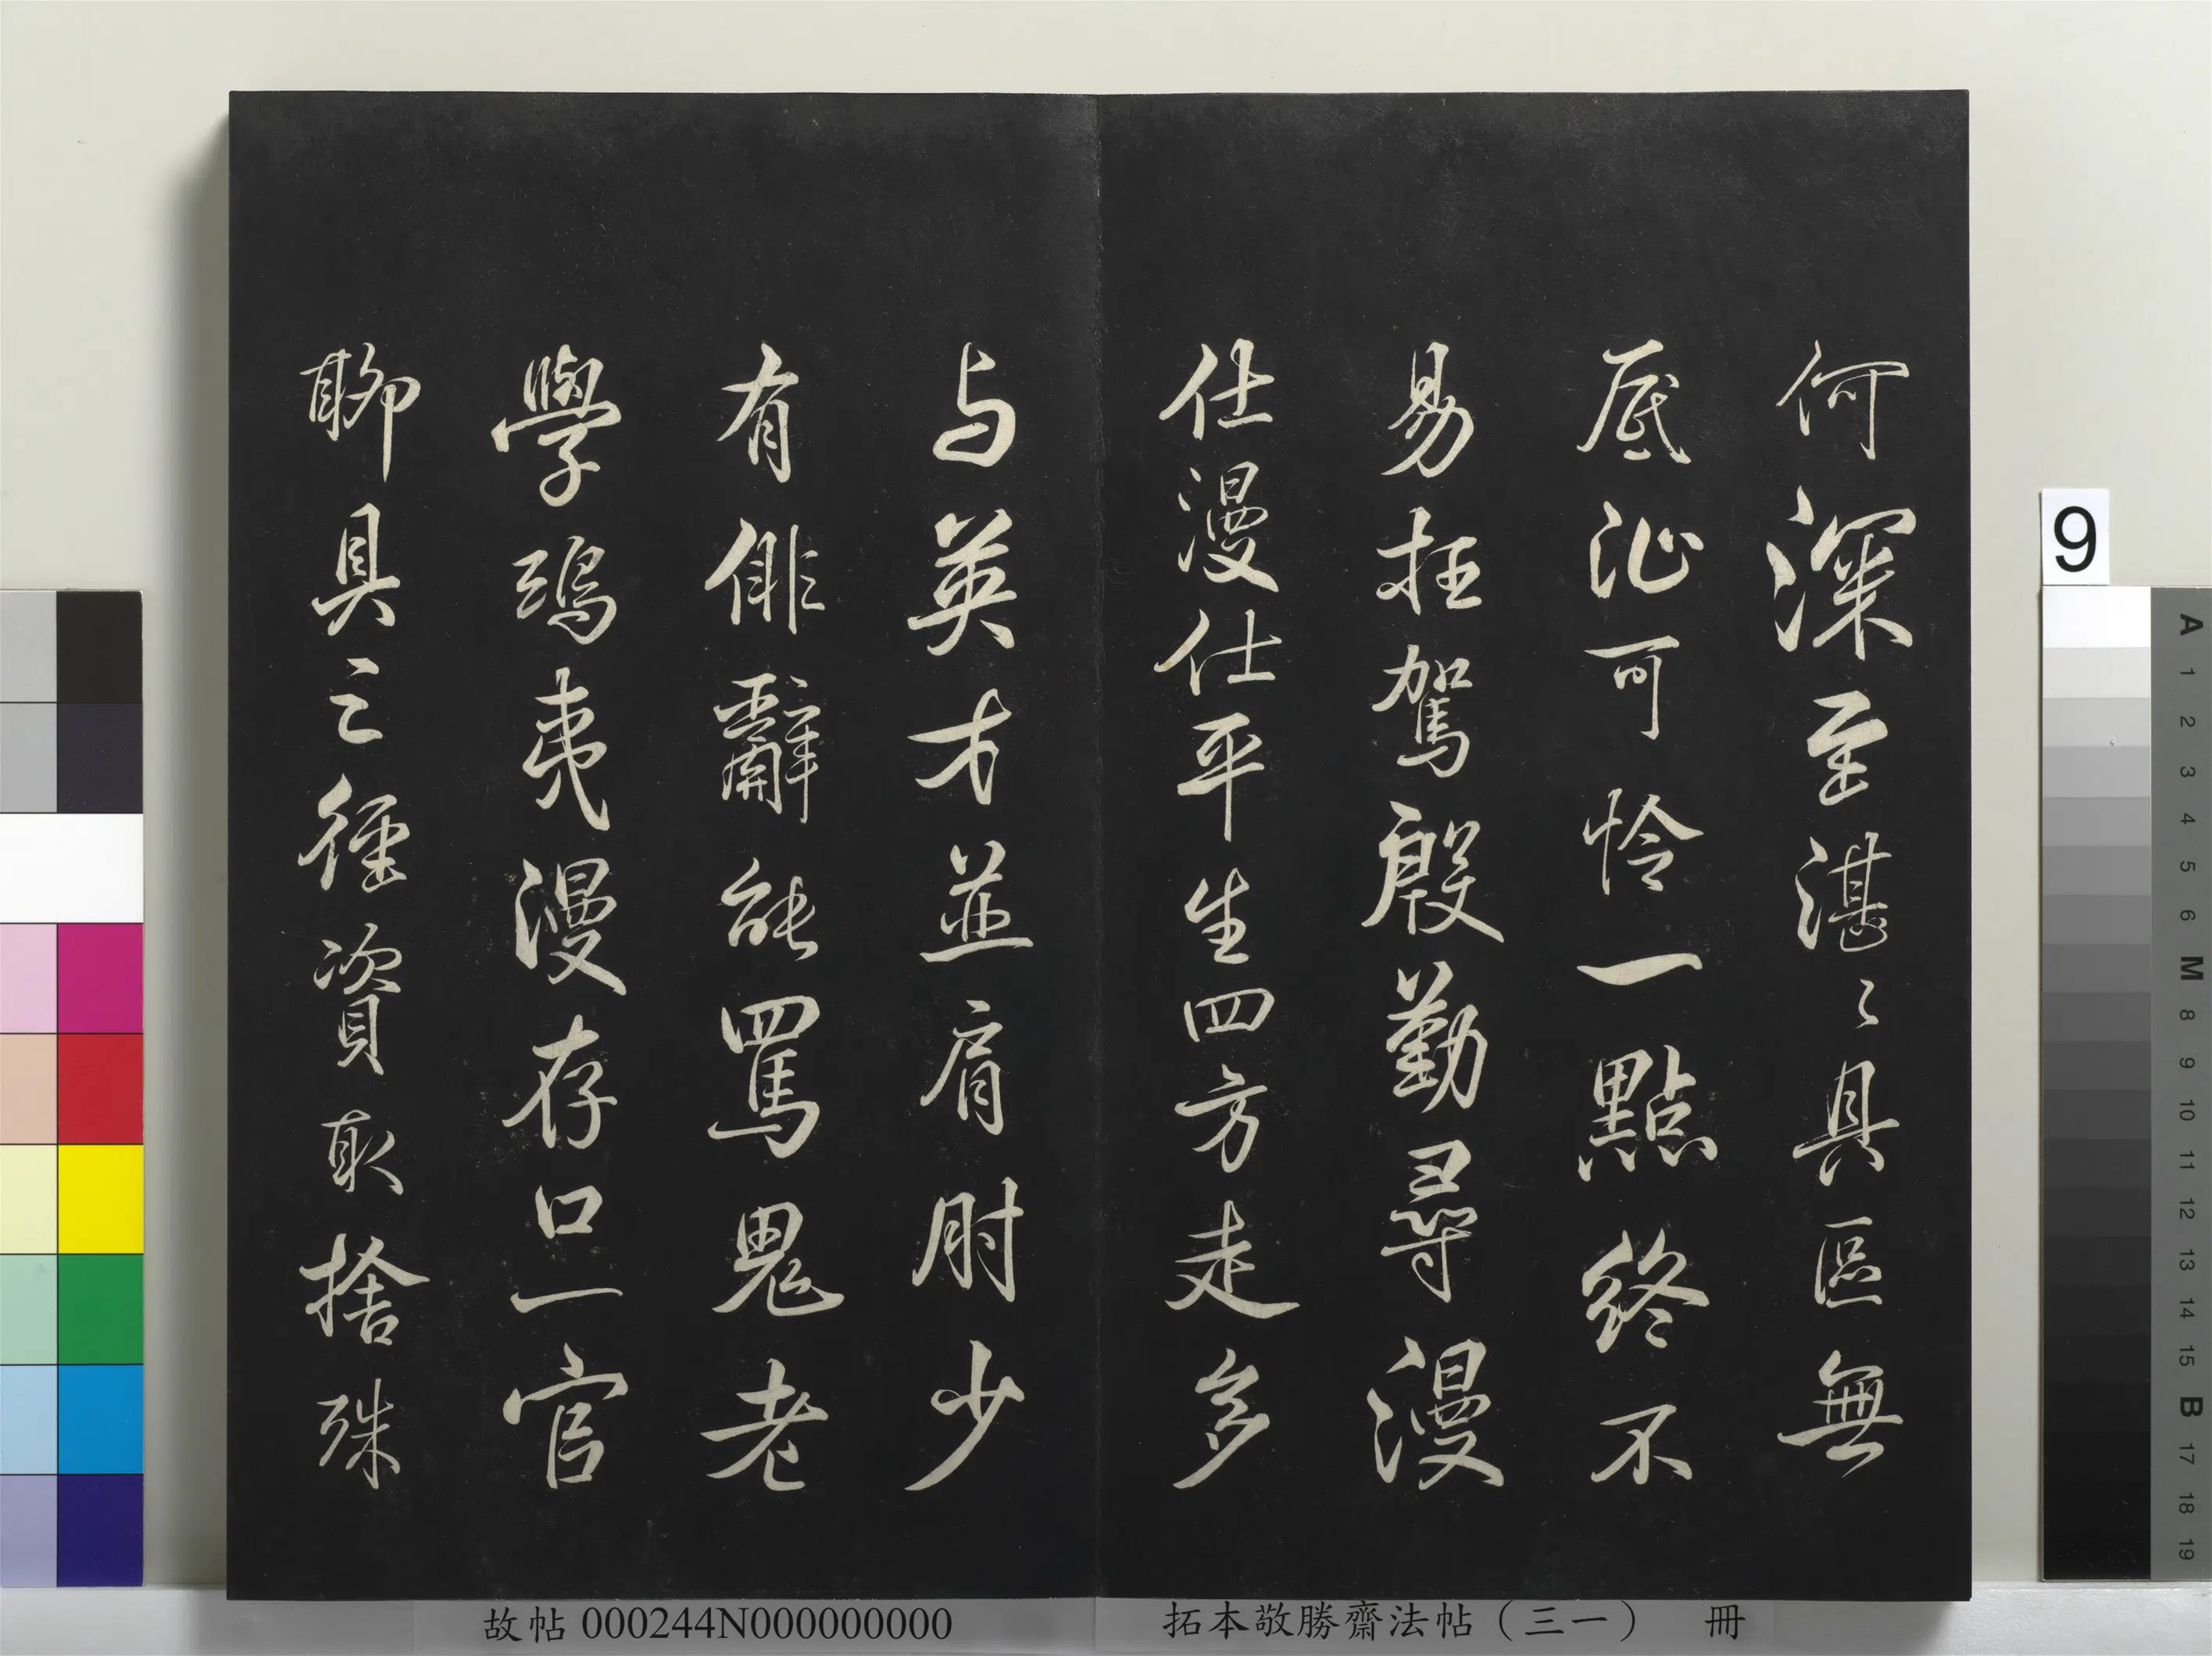 何深至湛〻具區無
底沚可怜一點終不
易枉駕殷勤尋漫
仕漫仕平生四方走多
与英才並肩肘少
有俳辭能罵鬼老
學鴟夷漫存口一官
聊具三徑資取捨殊
9
A 1 2 3 4 5 6 M 8 9 10 11 12 13 14 15 B 17 18 19
故帖 000244N000000000
拓本敬勝齋法帖（三一） 冊